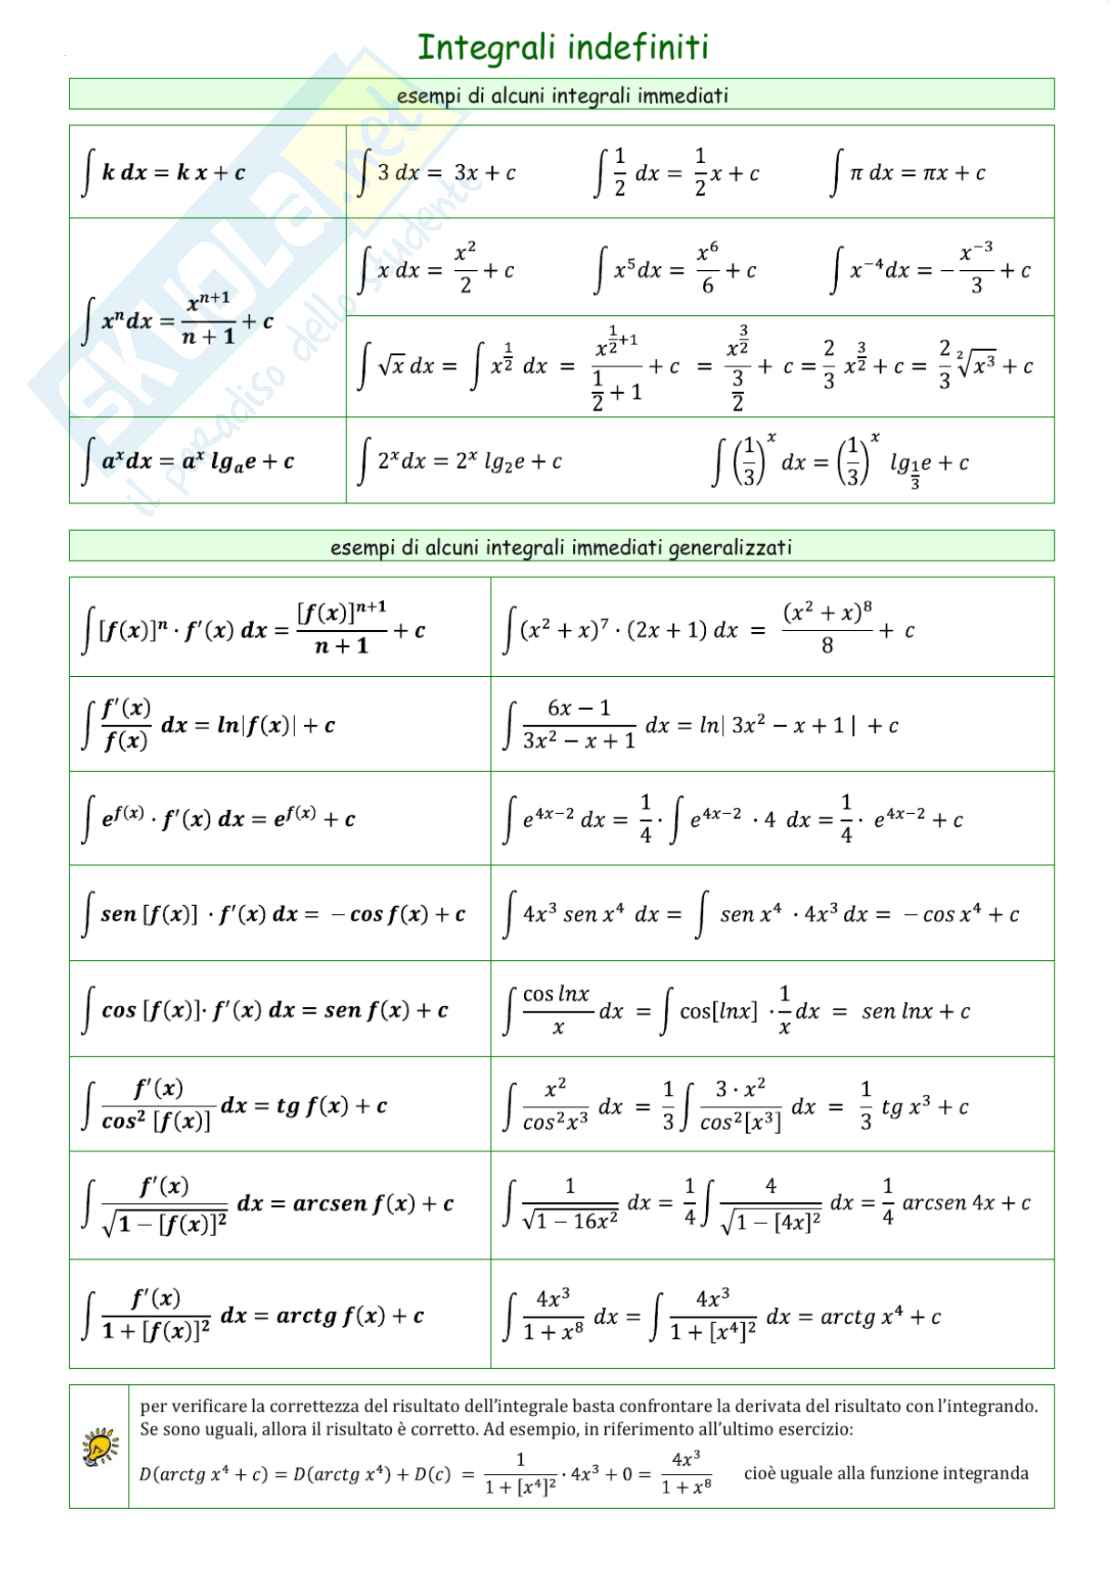 Integrali indefiniti
esempi di alcuni integrali immediati
∫ k dx = k x + c
∫ 3 dx = 3x + c   ∫ 1/2 dx = 1/2 x + c   ∫ π dx = πx + c
∫ xⁿ dx = xⁿ⁺¹/(n + 1) + c
∫ x dx = x²/2 + c   ∫ x⁵dx = x⁶/6 + c   ∫ x⁻⁴dx = − x⁻³/3 + c
∫ √x dx = ∫ x^(1/2) dx = x^(1/2+1)/(1/2 + 1) + c = x^(3/2)/(3/2) + c = 2/3 x^(3/2) + c = 2/3 ²√x³ + c
∫ aˣdx = aˣ lgₐe + c
∫ 2ˣdx = 2ˣ lg₂e + c   ∫ (1/3)ˣ dx = (1/3)ˣ lg_(1/3) e + c
SKUOLA.net
il paradiso dello studente
esempi di alcuni integrali immediati generalizzati
∫ [f(x)]ⁿ · f′(x) dx = [f(x)]ⁿ⁺¹/(n + 1) + c
∫ (x² + x)⁷ · (2x + 1) dx = (x² + x)⁸/8 + c
∫ f′(x)/f(x) dx = ln|f(x)| + c
∫ (6x − 1)/(3x² − x + 1) dx = ln| 3x² − x + 1 | + c
∫ e^f(x) · f′(x) dx = e^f(x) + c
∫ e^(4x−2) dx = 1/4 · ∫ e^(4x−2) · 4 dx = 1/4 · e^(4x−2) + c
∫ sen [f(x)] · f′(x) dx = − cos f(x) + c
∫ 4x³ sen x⁴ dx = ∫ sen x⁴ · 4x³ dx = − cos x⁴ + c
∫ cos [f(x)]· f′(x) dx = sen f(x) + c
∫ cos lnx/x dx = ∫ cos[lnx] · 1/x dx = sen lnx + c
∫ f′(x)/cos² [f(x)] dx = tg f(x) + c
∫ x²/cos²x³ dx = 1/3 ∫ 3 · x²/cos²[x³] dx = 1/3 tg x³ + c
∫ f′(x)/√(1 − [f(x)]²) dx = arcsen f(x) + c
∫ 1/√(1 − 16x²) dx = 1/4 ∫ 4/√(1 − [4x]²) dx = 1/4 arcsen 4x + c
∫ f′(x)/(1 + [f(x)]²) dx = arctg f(x) + c
∫ 4x³/(1 + x⁸) dx = ∫ 4x³/(1 + [x⁴]²) dx = arctg x⁴ + c
per verificare la correttezza del risultato dell'integrale basta confrontare la derivata del risultato con l'integrando.
Se sono uguali, allora il risultato è corretto. Ad esempio, in riferimento all'ultimo esercizio:
D(arctg x⁴ + c) = D(arctg x⁴) + D(c) = 1/(1 + [x⁴]²) · 4x³ + 0 = 4x³/(1 + x⁸)   cioè uguale alla funzione integranda